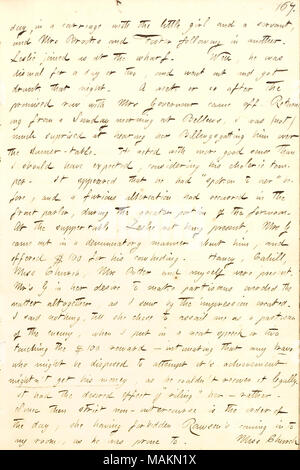 167
day, in a carriage with the little girl and a servant,
and Mrs Brooks and Foster following in another.
Leslie joined us at the wharf. Well, he was
dismal for a day or two and went out and got
drunk that night. A week or so after the
promised row with Mrs Government came off. Return
ing from a Sunday morning at Bellew's, I was just
much surprised at hearing her Billingsgating him over
the dinner-table. He acted with more good sense than
I should have expected, considering his choleric tem-
per. It appeared that he had "spoken to her" be-
fore, and a furious altercation had occurred in the
front parlor, during the greater portion of the forenoon.
At the supper table, Leslie not being present, Mrs G
came out in a denunciatory manner about him, and
offered $100 for his cowhiding. Cahill,
Miss Church, Mrs Potter and myself were present.
Mrs G in her desire to make partisans needed the
matter altogether, as I saw by the impression created.
I said nothing, till she chose to assail me as a partisan
of the enemy, when I put in a neat speech or two
touching the $100 reward — intimating that any
who might be disposed to attempt it's achievement
mightn't get his money, as he couldn't recover it legally.
It had the desired effect of "riling" her — rather.
Since then strict non-intercourse is the order of
the day, she having forbidden Rawson's coming in to
my room, as he was prone to. Miss Church
alamy
Image ID: MAKN1X
www.alamy.com